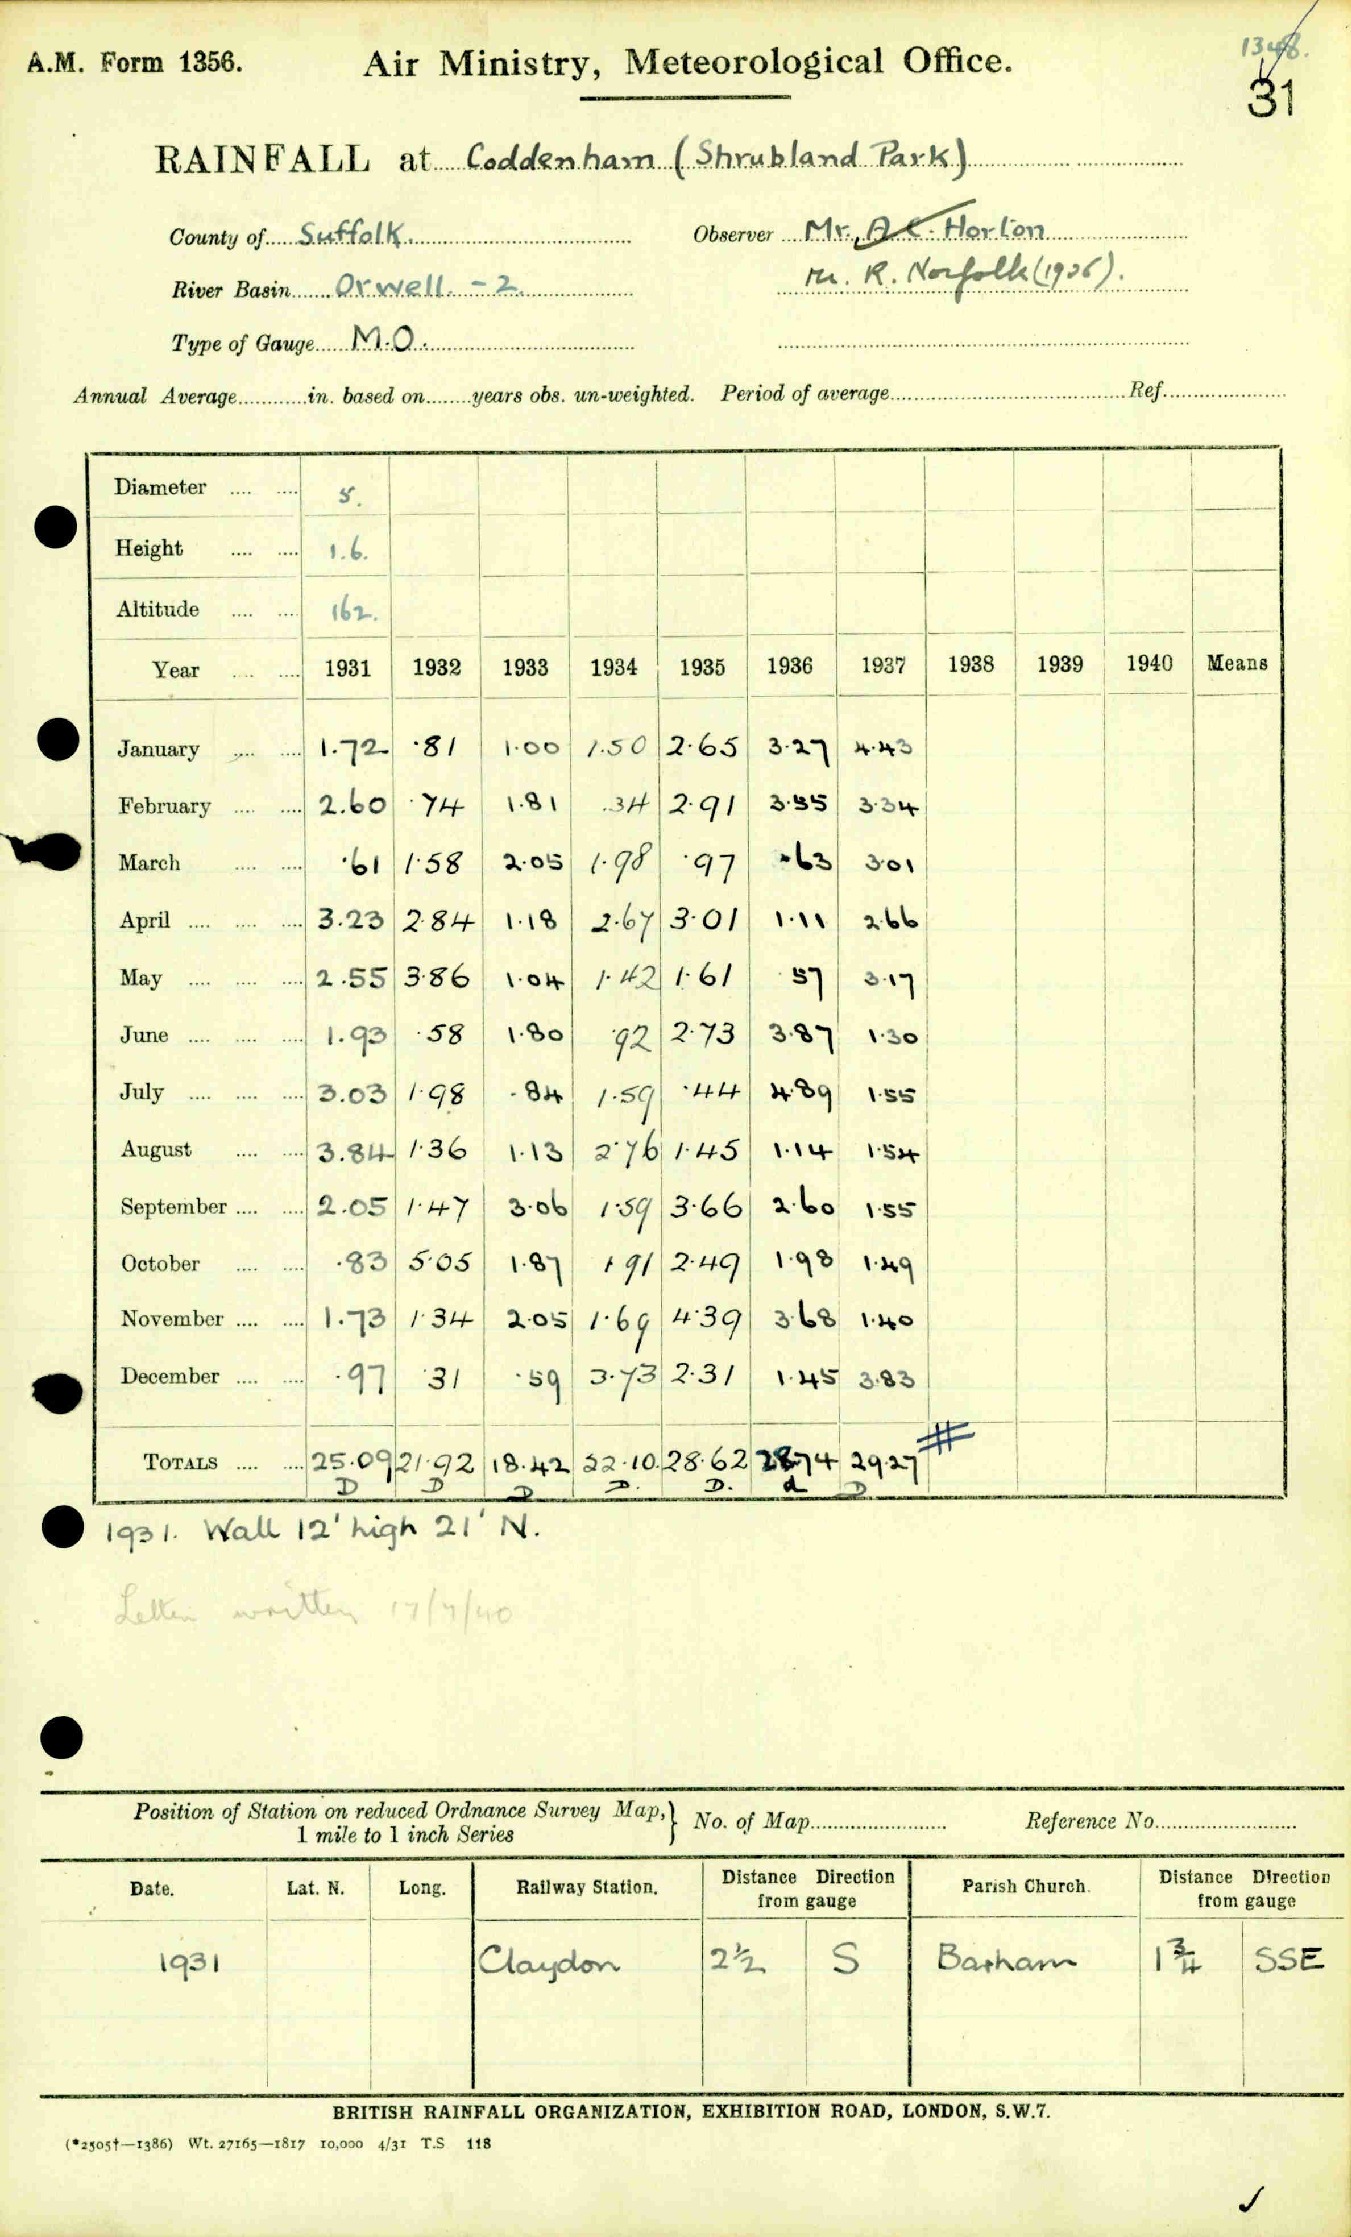 1348.
A.M. Form 1356. Air Ministry, Meteorological Office.
31
RAINFALL at Coddenham (Shrubland Park)
County of Suffolk. Observer Mr. A.C. Horton
River Basin Orwell. - 2. Mr. R. Norfolk (1936).
Type of Gauge M.O.
Annual Average in. based on years obs. un-weighted. Period of average Ref.
Diameter 5.
Height 1.6.
Altitude 162.
Year 1931 1932 1933 1934 1935 1936 1937 1938 1939 1940 Means
January 1.72 .81 1.00 1.50 2.65 3.27 4.43
February 2.60 .74 1.81 .34 2.91 3.55 3.34
March .61 1.58 2.05 1.98 .97 .63 3.01
April 3.23 2.84 1.18 2.67 3.01 1.11 2.66
May 2.55 3.86 1.04 1.42 1.61 .57 3.17
June 1.93 .58 1.80 .92 2.73 3.87 1.30
July 3.03 1.98 .84 1.59 .44 4.89 1.55
August 3.84 1.36 1.13 2.76 1.45 1.14 1.54
September 2.05 1.47 3.06 1.59 3.66 2.60 1.55
October .83 5.05 1.87 1.91 2.49 1.98 1.49
November 1.73 1.34 2.05 1.69 4.39 3.68 1.40
December .97 .31 .59 3.73 2.31 1.45 3.83
TOTALS 25.09 21.92 18.42 22.10 28.62 28.74 29.27 #
D D D D. D. d D
1931. Wall 12' high 21' N.
Letter written 17/7/40
Position of Station on reduced Ordnance Survey Map, } No. of Map Reference No.
1 mile to 1 inch Series
Date. Lat. N. Long. Railway Station. Distance Direction from gauge Parish Church. Distance Direction from gauge
1931 Claydon 2½ S Barham 1¾ SSE
BRITISH RAINFALL ORGANIZATION, EXHIBITION ROAD, LONDON, S.W.7.
(*2505†—1386) Wt. 27165—1817 10,000 4/31 T.S 118